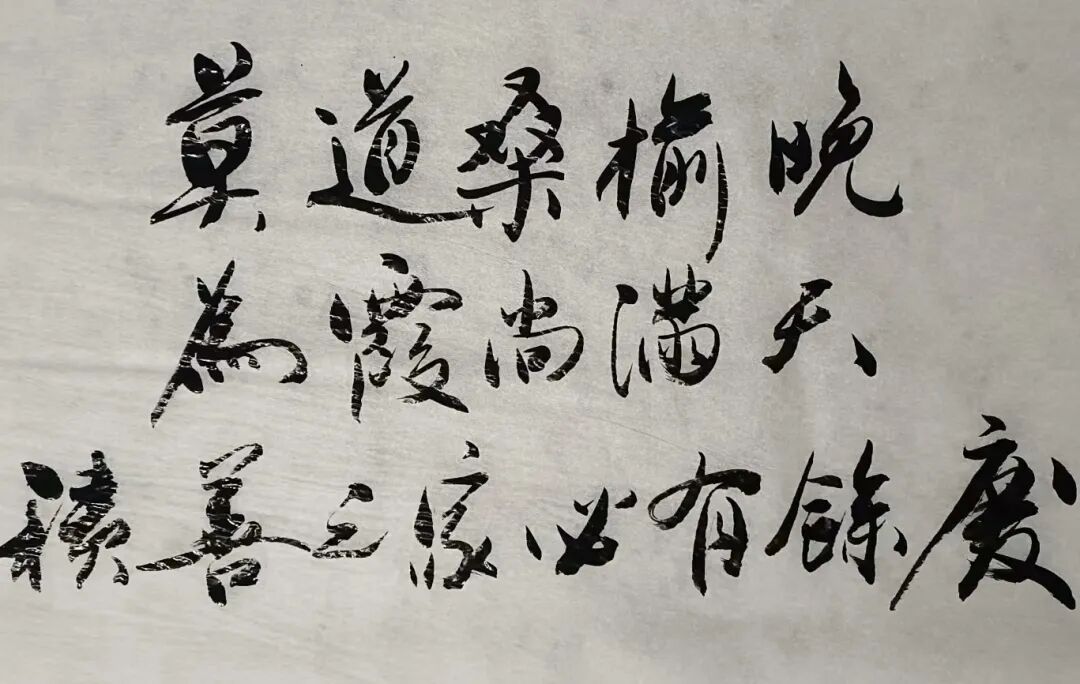 莫道桑榆晚
為霞尚滿天
積善之家必有餘慶